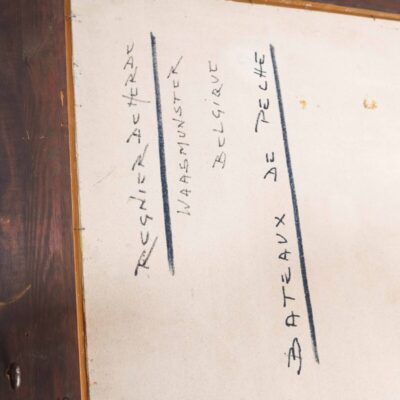 REGNIER DE HERDE
WAASMUNSTER
BELGIQUE
BATEAUX DE PECHE